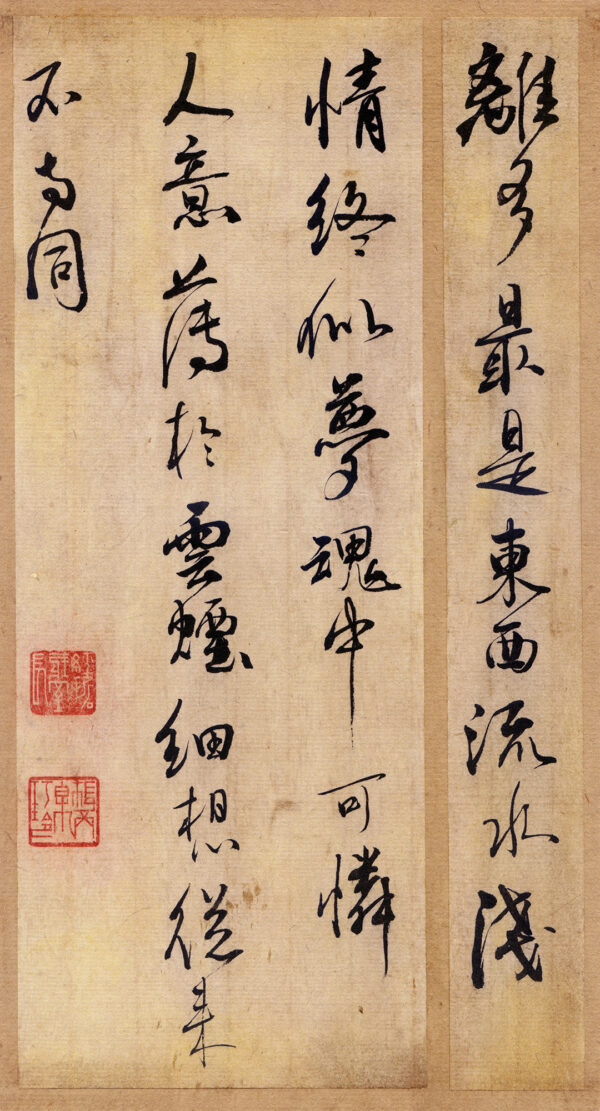 離多最是東西流水淺
情終似夢魂中可憐
人意薄於雲煙細想從來
不与同